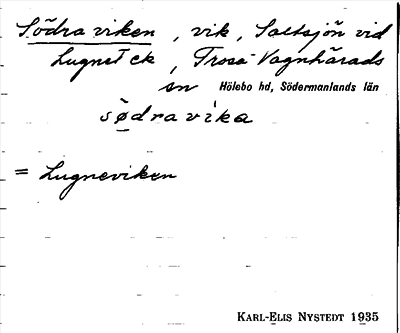 Södra viken, vik, Saltsjön vid
Lugnet ek, Trosa-Vagnhärads
sn Hölebo hd, Södermanlands län
södravika
= Lugneviken
KARL-ELIS NYSTEDT 1935